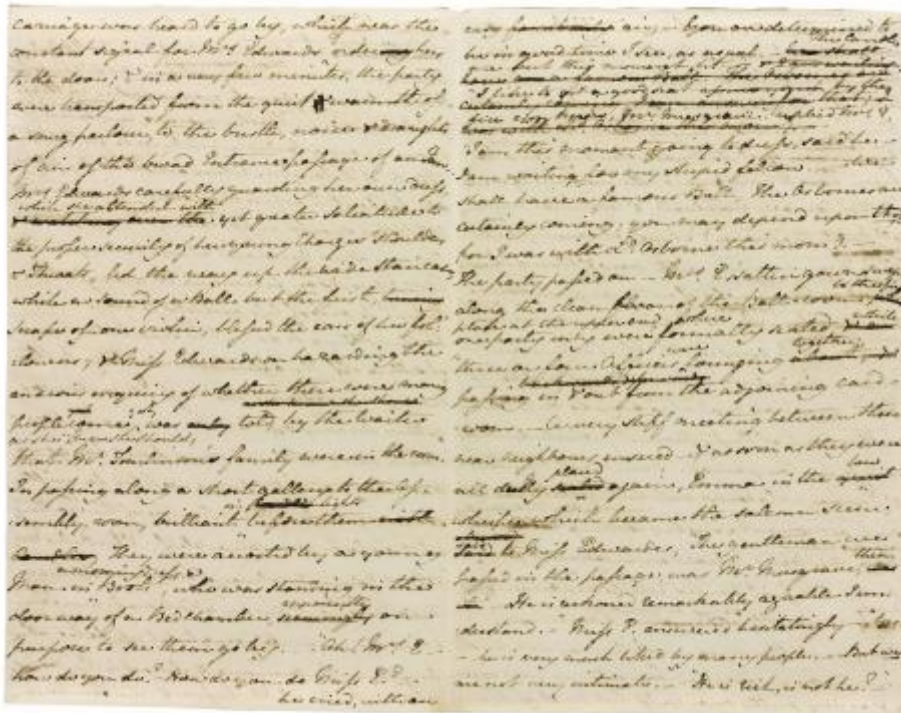 carriage was heard to go by, which was the
constant signal for Mrs. Edwards' ordering hers
to the door; & in a very few minutes, the party
were transported from the quiet warmth of
a snug parlour, to the bustle, noise & draughts
of air of the broad Entrance passage of an Inn.
Mrs. Edwards carefully guarding her own dress
while she attended with
yet greater solicitude to
the proper security of her young Charges' Shoulders
& Throats, led the way up the wide staircase,
while no sound of a Ball but the first
scrape of one violin, blessed the ears of her fol-
lowers, & Miss Edwards on hazarding the
anxious enquiry of whether there were many
people come yet was told by the Waiter
as she knew she should,
that Mr. Tomlinson's family were in the room.
In passing along a short gallery to the as-
sembly room, brilliant in lights before them
They were accosted by a young
Man in a morning dress & Boots, who was standing in the
doorway of a Bedchamber, apparently on
purpose to see them go by. "Ah! Mrs. E.
how do you do? How do you do Miss E.?
he cried, with an
easy air; You are determined to
be in good time I see, as usual.
but this moment lit
I am this moment going to dress, said he
I am waiting for my stupid fellow. We
shall have a famous Ball. The Osbornes are
certainly coming; you may depend upon that
for I was with Ld. Osborne this morng.
The party passed on. Mrs. E.'s sattin gown swept
along the clean floor of the Ball-room to the fire
place at the upper end, where
one party only were formally seated, while
three or four Officers were lounging together,
passing in & out from the adjoining card-
room. A very stiff meeting between these
near neighbours ensued & as soon as they were
all duely placed again, Emma in the low
whisper which became the solemn scene
said to Miss Edwardes, The gentleman we
passed in the passage, was Mr. Musgrave, then
He is reckoned remarkably agreable I un-
derstand. Miss E. answered hesitatingly Yes
he is very much liked by many people. But we
are not very intimate. He is rich, is not he?